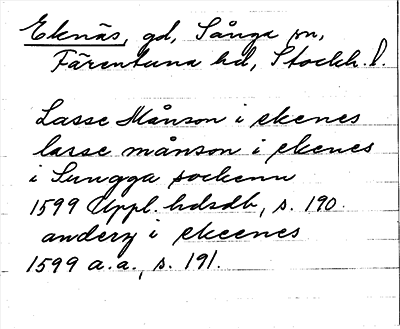 Eknäs, gd, Sånga sn,
Färentuna hd, Stockh. l.
Lasse Månson i ekenes
larse månson i ekenes
i Sungga sockenn
1599 Uppl. hdsdb, s. 190.
anderz i ekeenes
1599 a.a., s. 191.